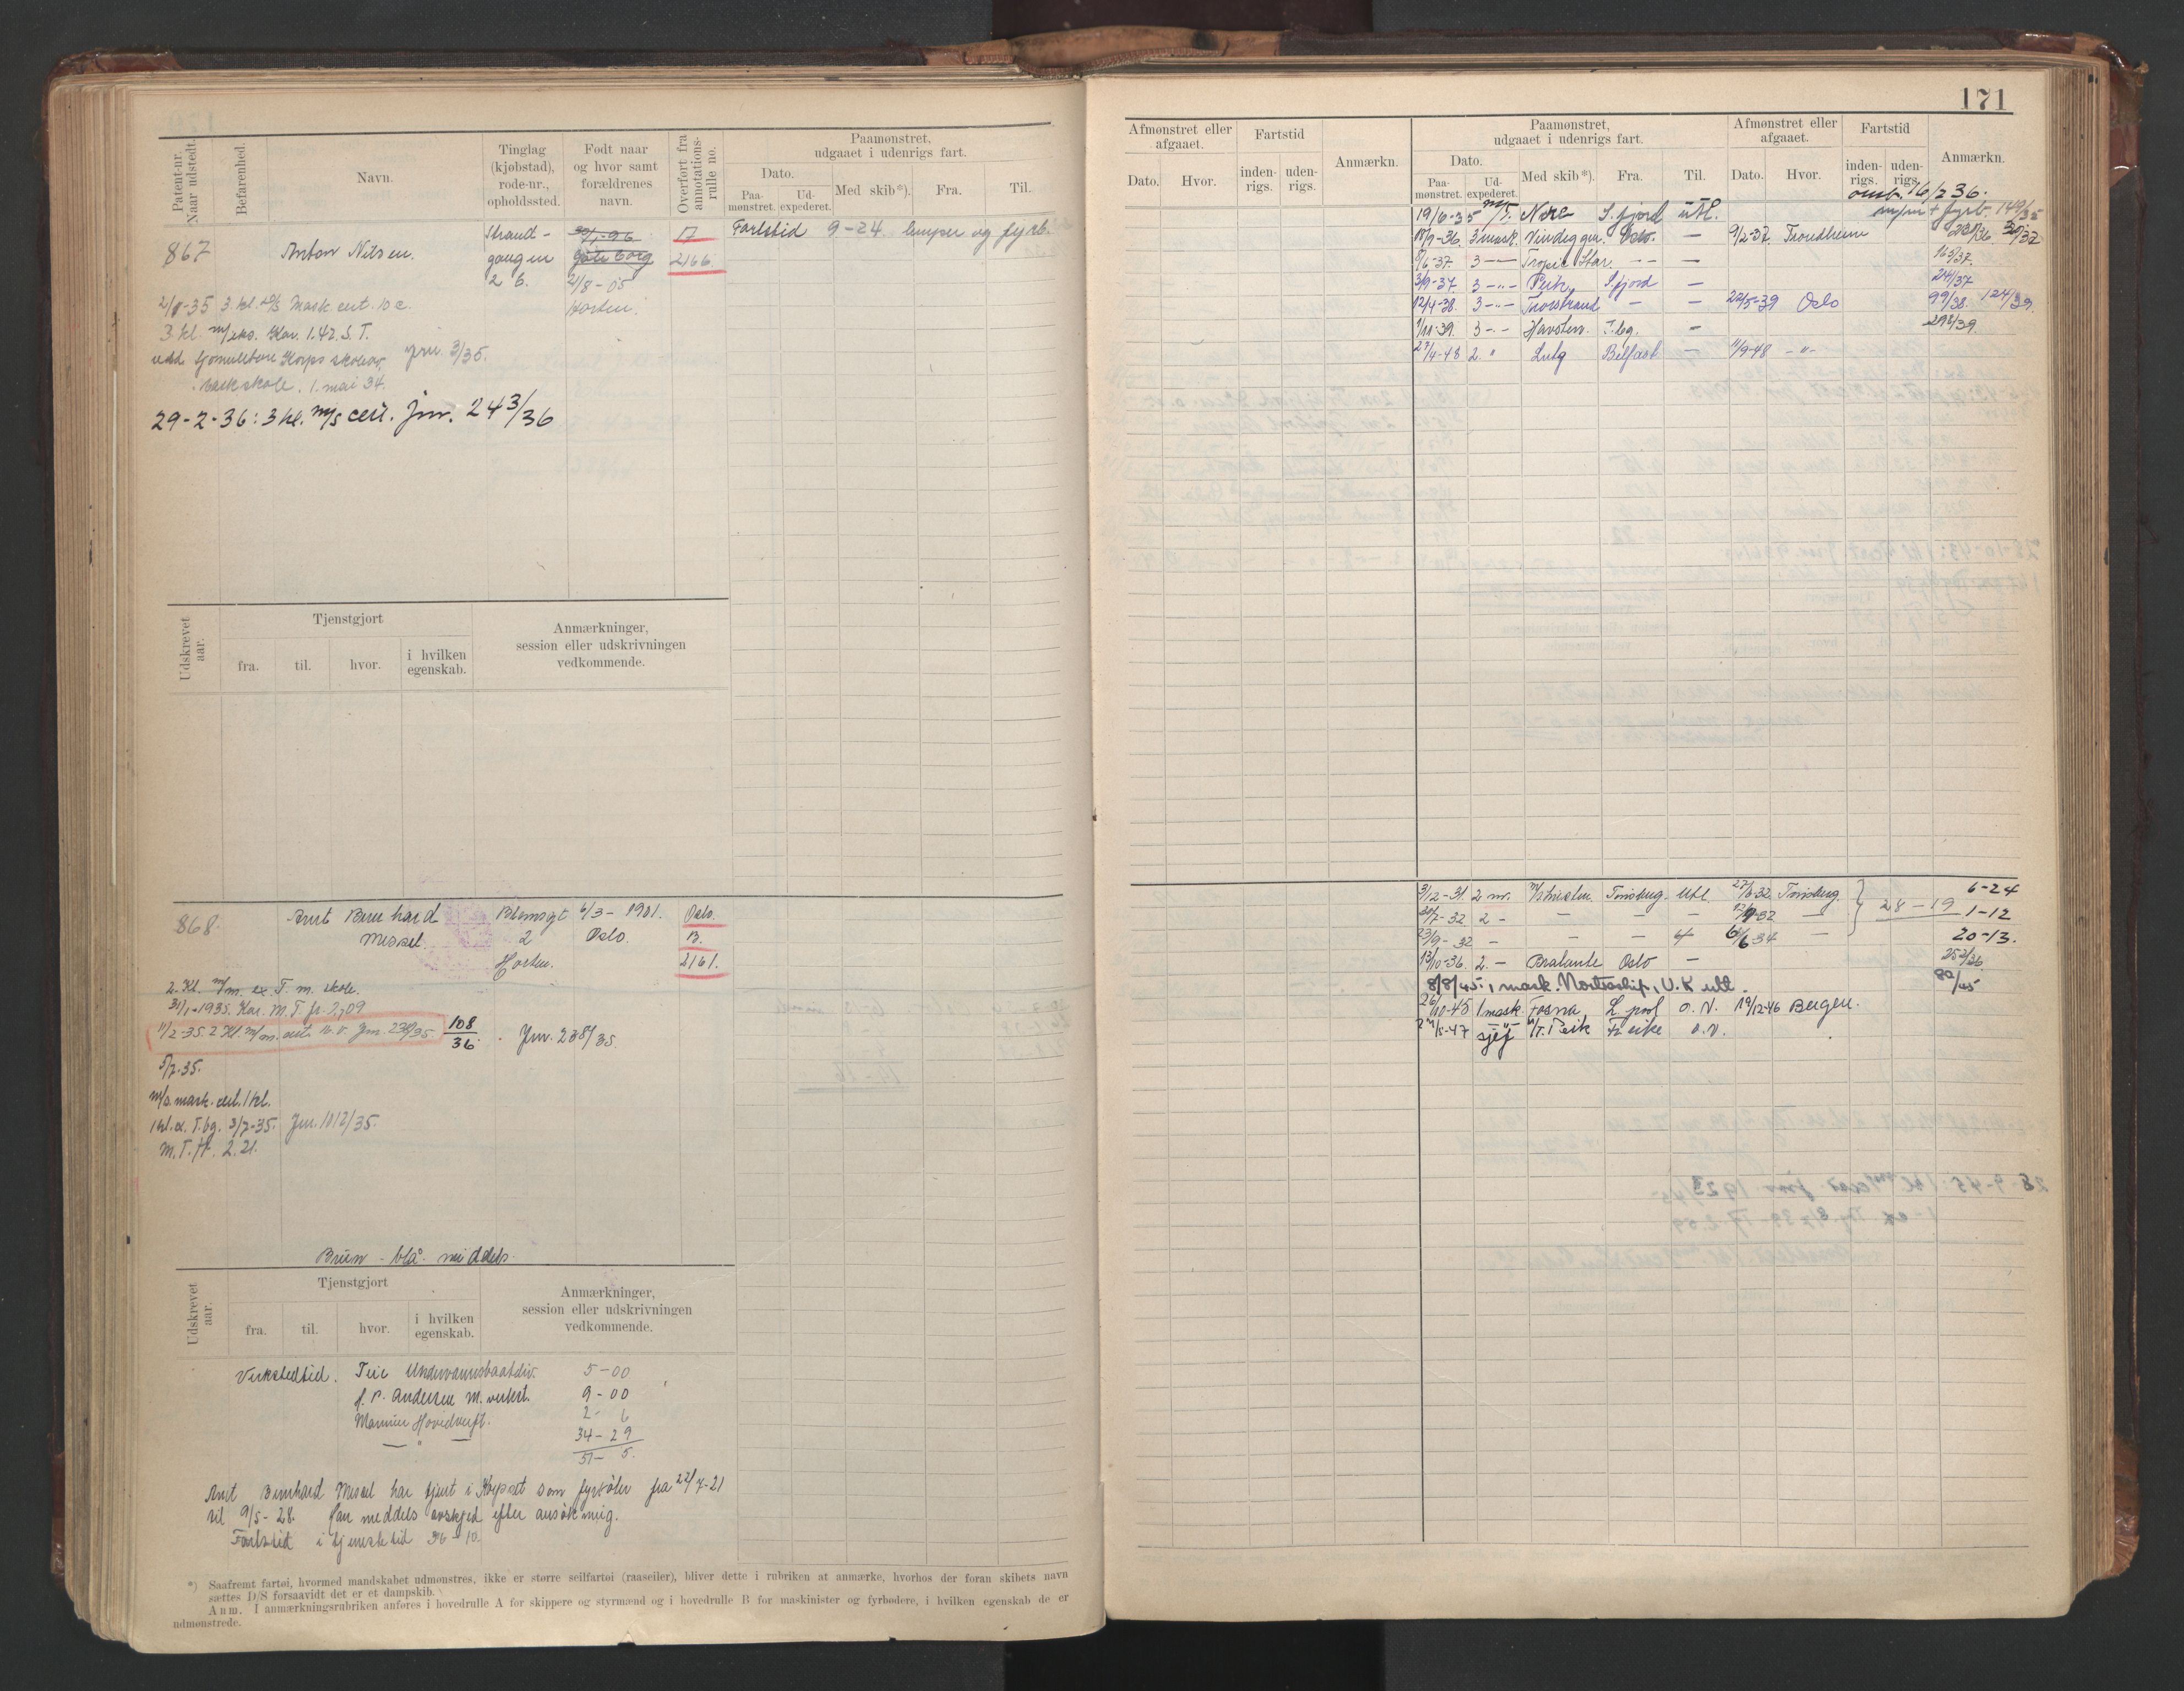 171
Patent-nr. Naar udstedt.
Befarenhed.
Navn.
Tinglag (kjøbstad), rode-nr., opholdssted.
Født naar og hvor samt forældrenes navn.
Overført fra annotations-rulle no.
Paamønstret, udgaaet i udenrigs fart.
Dato.
Paa-mønstret.
Ud-expederet.
Med skib*).
Fra.
Til.
867
Anton Nilsen.
Strand-
gangen
2 b.
30/1-96
Göteborg
21/8-05
Horten.
17
2166.
Fartstid 9-24 lemper og fyrb.
3 kl.
29-2-36: 3 kl. m/s cert. Jnr. 243/36
Udskrevet aar.
Tjenstgjort
fra.
til.
hvor.
i hvilken egenskab.
Anmærkninger, session eller udskrivningen vedkommende.
868
Arnt Bernhard
Messel.
Blomsgt
2
Horten.
6/3-1901.
Oslo.
Oslo.
B.
2161.
2. Kl. m/m. ex. T. m. skole.
31/1-1935. Kar. M. T. fr. 2,09
11/2-35. 2 Kl. m/m. cert. Jnr. 238/35.
108/36
Jnr. 238/35
5/7-35.
m/s mask. cert. 1 kl.
1 kl. T.bg. 3/7-35. Jnr. 1012/35.
M.T. fr. 2.21.
Brun - blå - middels.
Udskrevet aar.
Tjenstgjort
fra.
til.
hvor.
i hvilken egenskab.
Anmærkninger, session eller udskrivningen vedkommende.
Verkstedtid. Teie Undervannsbaatdiv. 5-00
Andersen M. verkst. 9-00
Marinens Hovedverft. 2-6
— " — 34-29
51-5.
Arnt Bernhard Messel har tjent i Korpset som fyrbøter fra 22/7-21
til 9/5-28. Han meddels avskjed efter ansøkning.
Fartstid i tjenestetid 36-10.
*) Saafremt fartøi, hvormed mandskabet udmønstres, ikke er større seilfartøi (raaseiler), bliver dette i rubriken at anmærke, hvorhos der foran skibets navn
sættes D/S forsaavidt det er et dampskib.
Anm. I anmærkningsrubriken anføres i hovedrulle A for skippere og styrmænd og i hovedrulle B for maskinister og fyrbødere, i hvilken egenskab de er
udmønstrede.
Afmønstret eller afgaaet.
Dato.
Hvor.
Fartstid
inden-rigs.
uden-rigs.
Anmærkn.
Paamønstret, udgaaet i udenrigs fart.
Dato.
Paa-mønstret.
Ud-expederet.
Med skib*).
Fra.
Til.
Afmønstret eller afgaaet.
Dato.
Hvor.
Fartstid
inden-rigs.
uden-rigs.
Anmærkn.
omb. 16/2 36.
19/6-35 m/T. Nore S.fjord utl. 149/35
18/9-36. 3 mask. Vindeggen. Oslo. — 9/2-37. Trondheim
8/6-37. 3 — Tropic Star. — — 163/37.
3/9-37. 3 -"- Peik, S.fjord — 241/37
12/4-38. 3 -"- Thorstrand — — 22/5-39 Oslo 99/38. 124/39.
1/11-39. 3 -"- Havsten. T.bg. — 292/39.
27/4-48 2. " Lutz Belfast — 11/9-48 -"-
3/12-31. 2 m. Tønsberg utl. Tønsberg 6-24
30/7-32 2 - — — — — 28-19 1-12
23/9-32 — — — 6/6-34 — 20-13.
13/10-36. 2. - Brabante Oslo — 252/36
8/8/45: 1 mask. Nortraship, U.K utl. 80/45
26/10-45 1 mask. Fosna, L.pool o.V. 19/12-46 Bergen.
sjef M/T. Peik o.V.